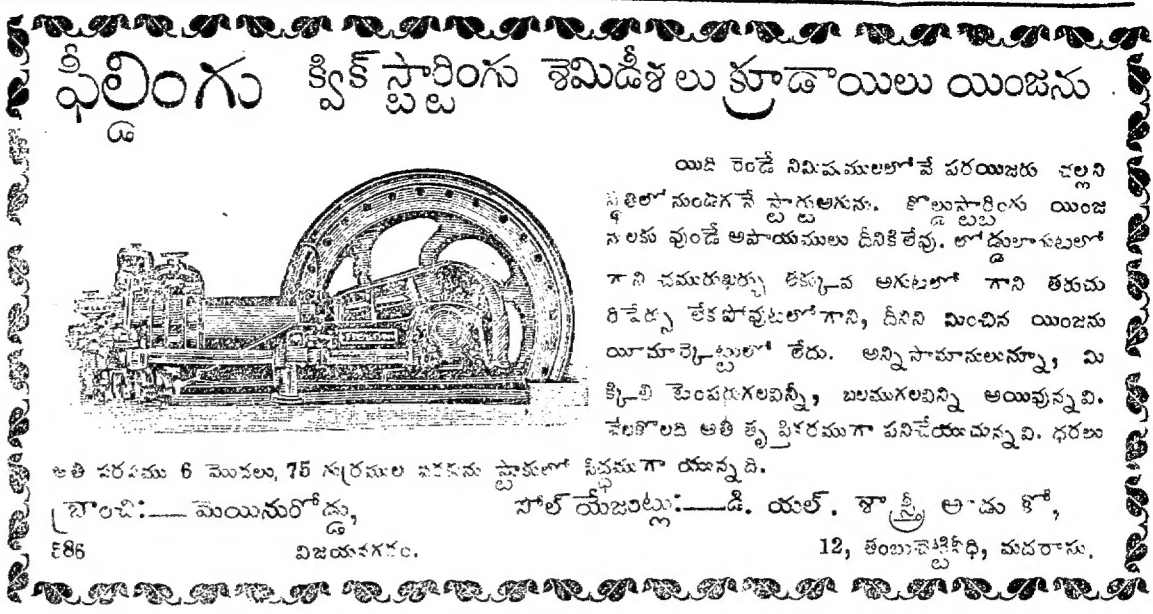 ఫీల్డింగు క్విక్ స్టార్టింగు శెమిడీశలు క్రూడాయిలు యింజను
యిది రెండే నిమిషములలోవే పరయిజరు చల్లని
స్థితిలో నుండగనే స్టార్టుఅగును. కొల్డుస్టార్టింగు యింజ
నులకు వుండే అపాయములు దీనికి లేవు. లోడ్డులాగుటలో
గాని చమురుఖర్చు తక్కువ అగుటలో గాని తరుచు
రిపేర్సు లేకపోవుటలోగాని, దీనిని మించిన యింజను
యీమార్కెట్టులో లేదు. అన్ని సామానులున్నూ, మి
క్కిలి టెంపరుగలవిన్నీ, బలముగలవిన్ని అయివున్నవి.
వేలకొలది అతి తృప్తికరముగా పనిచేయుచున్నవి. ధరలు
అతి సరసము 6 మొదలు, 75 గుర్రముల వరకును స్టాకులో సిద్ధముగా యున్నది.
బ్రాంచి:— మెయినురోడ్డు, సోల్ యేజంట్లు:— డి. యల్. శాస్త్రీ అండు కో,
586 విజయనగరం. 12, తంబుచెట్టివీధి, మదరాసు.